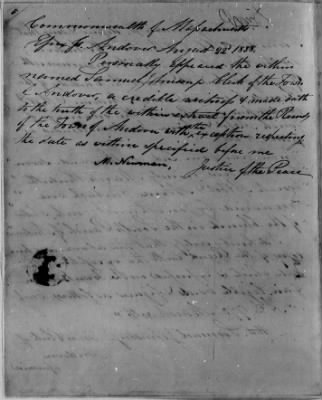 Commonwealth of Massachusetts
Essex ss. Andover August 22d 1838.
Personally appeared the within
named Samuel Phineap Clerk of the Town
of Andover, a credible witness & made oath
to the truth of the within extract from the Records
of the Town of Andover with the exception respecting
the date as within specified before me
M. Newman, Justice of the Peace